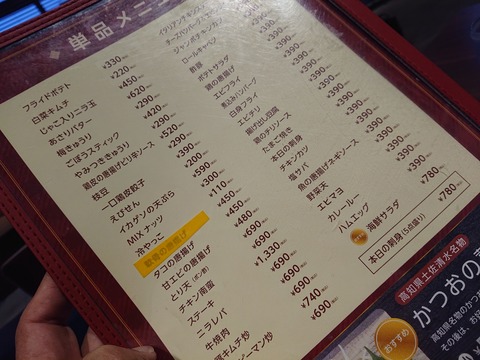 単品メニュ
フライドポテト
白菜キムチ
じゃこ入りニラ玉
あさりバター
梅きゅうり
ごぼうスティック
やみつききゅうり
鶏皮の唐揚げピリ辛ソース
枝豆
一口鶏皮餃子
えびせん
イカゲソの天ぷら
MIXナッツ
冷やっこ
の唐揚げ
タコの唐揚げ
甘エビの唐揚げ
とり天(ポン酢)
チキン南蛮
ステーキ
ニラレバ
牛焼肉
豚キムチ炒
ピーマン炒
¥330
¥220
¥450
¥620
¥290
¥420
¥290
¥290
¥520
¥290
¥390
¥590
¥300
¥110
¥450
¥450
¥480
¥690
¥690
¥1,330
¥690
¥690
¥740
¥690
ジャンボチキンカツ
ロールキャベツ
酢豚
ポテトサラダ
鶏の唐揚げ
エビフライ
煮込みハンバーグ
白身フライ
エビチリ
揚げ出し豆腐
鶏のチリソース
たまご焼き
本日の刺身
チキンカツ
塩サバ
魚の唐揚げネギソース
野菜天
エビマヨ
カレールー
ハムエッグ
海鮮サラダ
¥390
¥390
¥390
¥390
¥390
¥390
¥390
¥390
¥390
¥390
¥390
¥390
¥390
¥390
¥390
¥390
¥390
¥390
¥390
¥780
本日の刺身(5点盛り) ¥780
高知県土佐清水名物
かつおの
おすすめ
高知県名物のかつ
その後は、お好